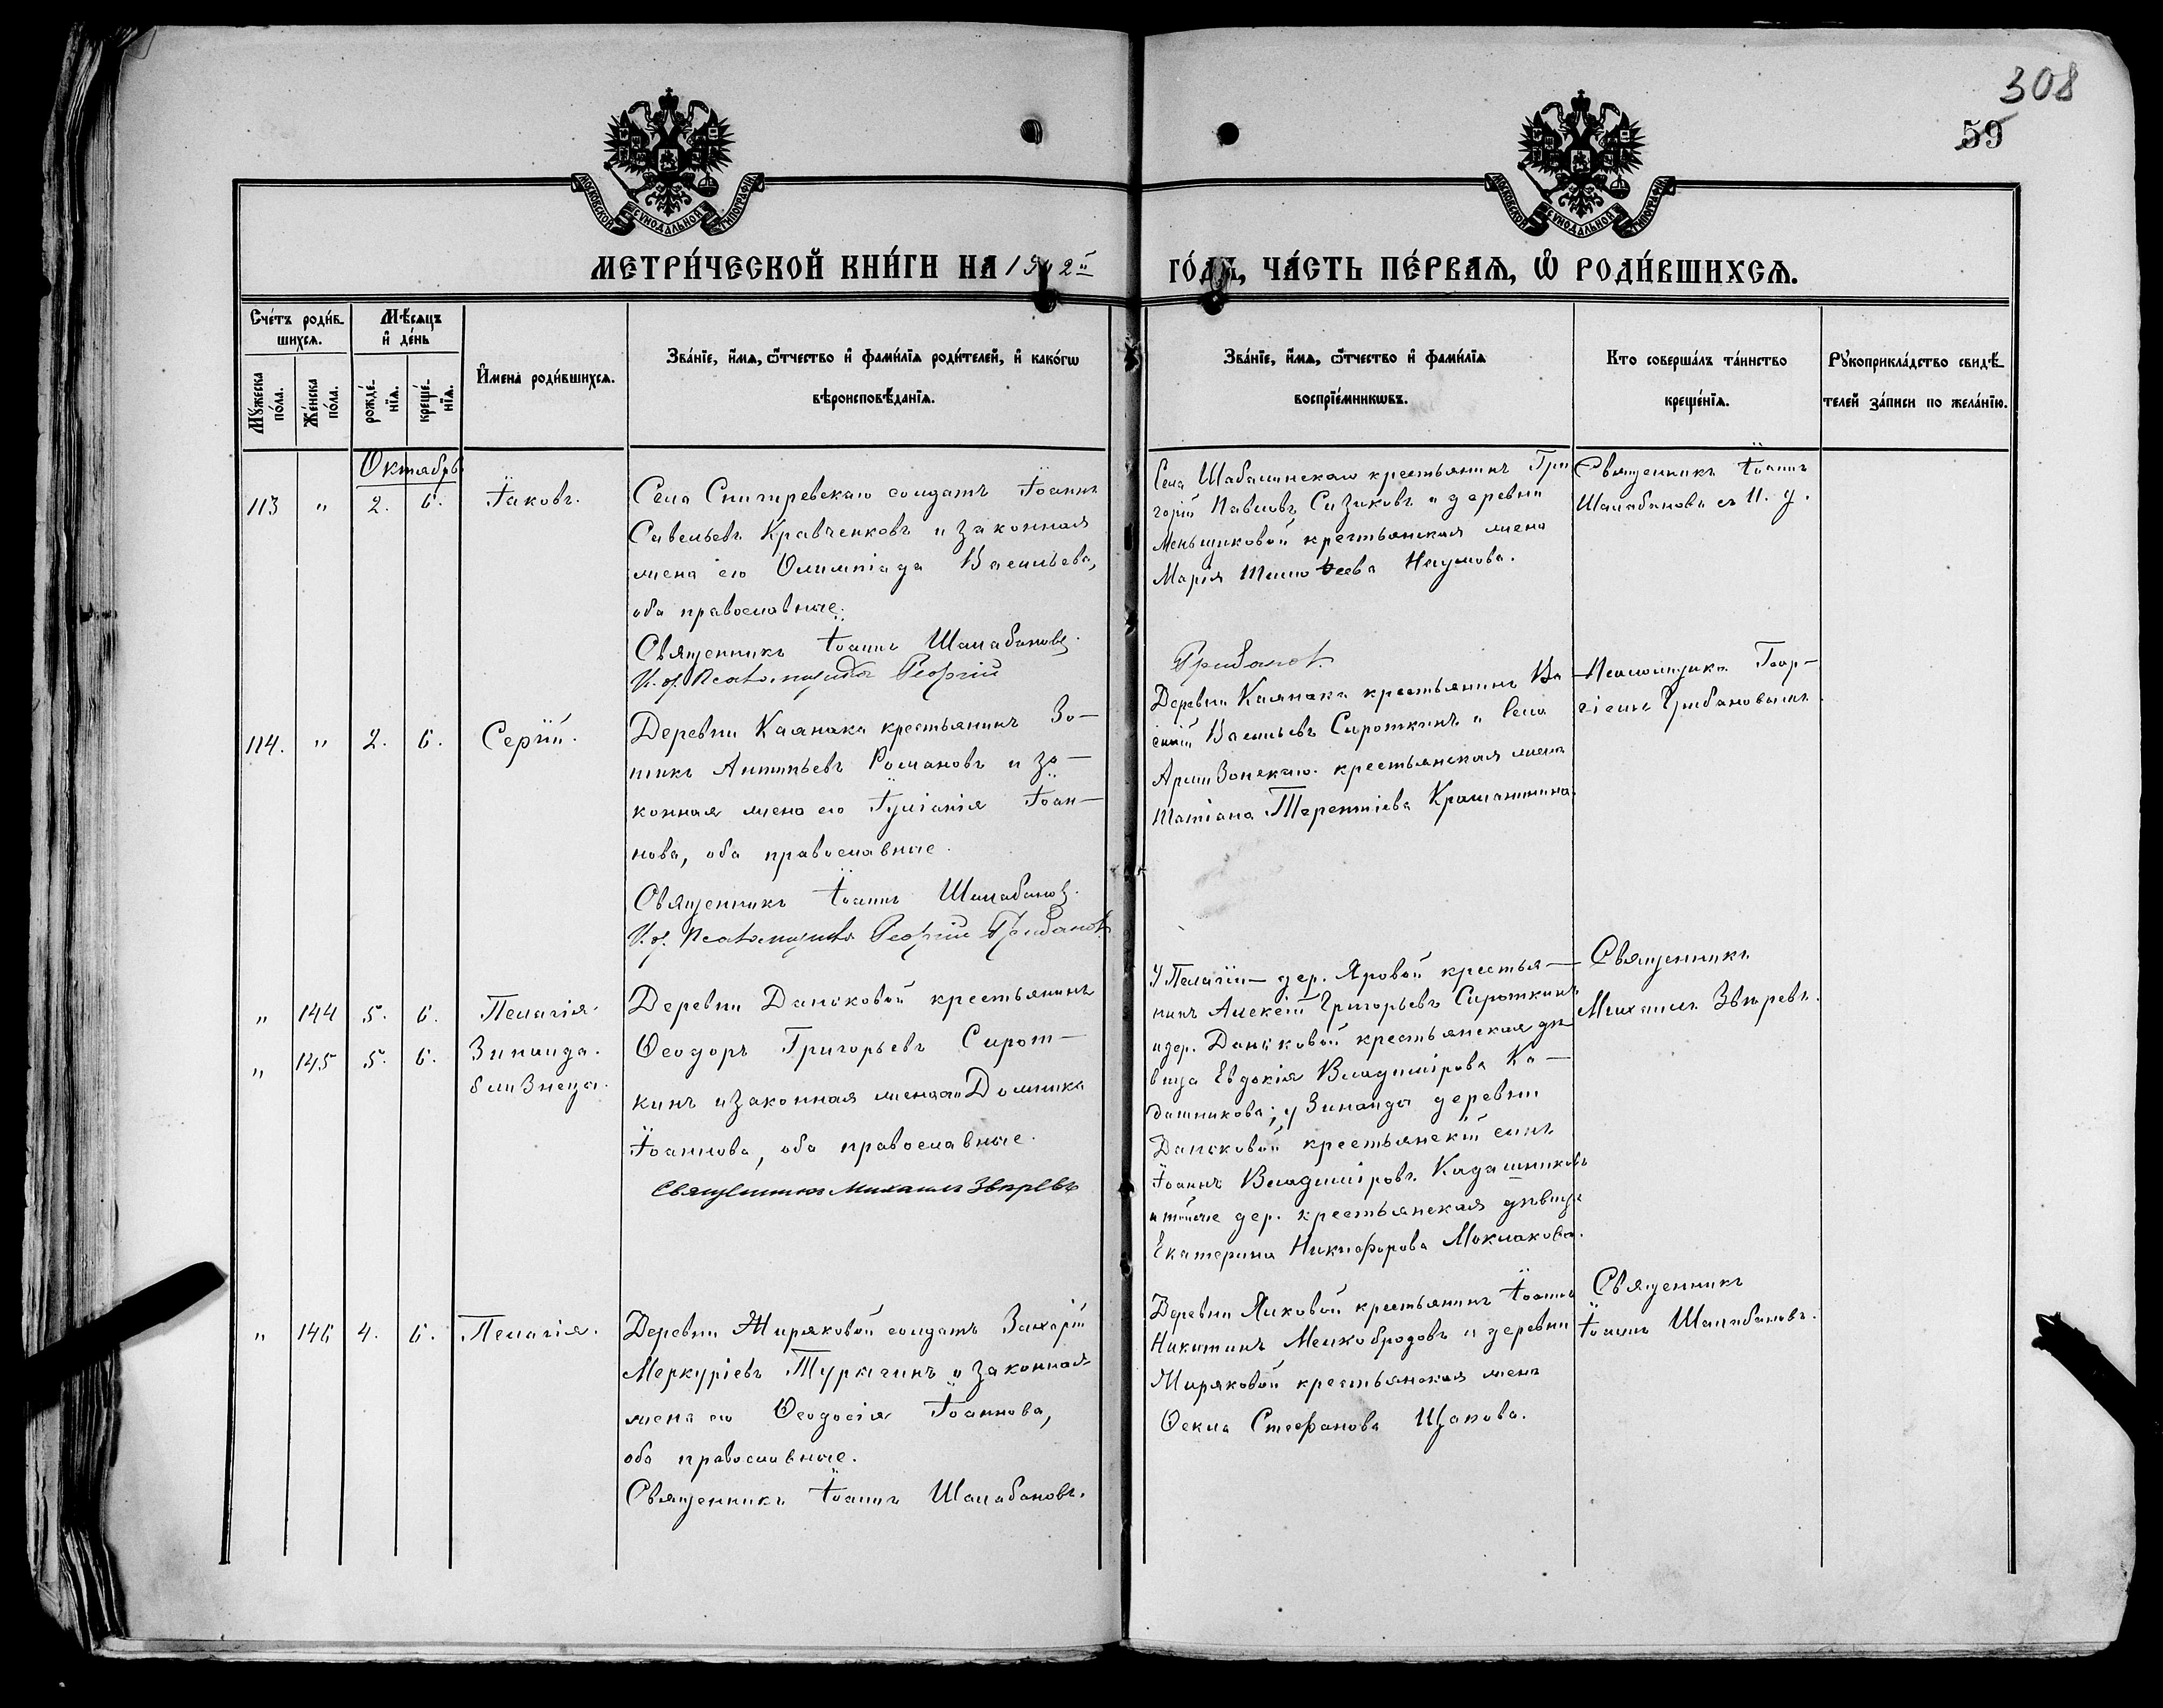 308
59
МОСКОВСКОЙ СѴНОДАЛЬНОЙ ТИПОГРАФІИ
МОСКОВСКОЙ СѴНОДАЛЬНОЙ ТИПОГРАФІИ
МЕТРИ́ЧЕСКОЙ КНИ́ГИ НА 1912й ГО́ДЪ, ЧА́СТЬ ПЕ́РВАЯ, Ѽ РОДИ́ВШИХСЯ.
Сче́тъ роди́в-
шихся.
Му́жеска по́ла.
Же́нска по́ла.
Мѣ́сяцъ
и де́нь
рожде́-
нїя.
креще́-
нїя.
Имена̀ роди́вшихся.
Зва́нїе, и́мя, ѻ́тчество и фами́лїя роди́телей, и како́гѡ
вѣроисповѣ́данїя.
Зва́нїе, и́мя, ѻ́тчество и фами́лїя
воспрїе́мникѡвъ.
Кто соверша́лъ та́инство
креще́нїя.
Рꙋкоприкла́дство свидѣ́-
телей за́писи по жела́нїю.
Октябрь
113 " 2. 6. Іаковъ.
Села Снигиревскаго солдатъ Іоаннъ
Савельевъ Кравченковъ и законная
жена его Олимпіада Васильева,
оба православные.
Священникъ Іоаннъ Шалабановъ.
И. д. Псаломщика Георгій
Грибановъ.
Села Шабалинскаго крестьянинъ Гри
горій Павловъ Сизиковъ и деревни
Меньщиковой крестьянская жена
Марія Тимоѳеева Наумова.
Священникъ Іоаннъ
Шалабановъ съ И. д.
Псаломщика Геор-
гіемъ Грибановымъ.
114. " 2. 6. Сергій.
Деревни Каянака крестьянинъ Зо-
тикъ Антипьевъ Романовъ и за-
конная жена его Іуліанія Іоан-
нова, оба православные.
Священникъ Іоаннъ Шалабановъ.
И. д. Псаломщика Георгій Грибановъ
Деревни Каянака крестьянинъ Ва
силій Васильевъ Сироткинъ и Села
Армизонскаго крестьянская жена
Татіана Терентіева
" 144 5. 6. Пелагія.
" 145 5. 6. Зинаида.
близнецы.
Деревни Даньковой крестьянинъ
Ѳеодоръ Григорьевъ Сирот-
кинъ и законная жена его Домника
Іоаннова, оба православные.
Священникъ Михаилъ Звѣревъ
У Пелагіи - дер. Яровой крестья-
нинъ Алексій Григорьевъ Сироткинъ
и дер. Даньковой крестьянская дѣ
вица Евдокія Владимірова Ка-
дашникова; у Зинаиды деревни
Даньковой крестьянскій сынъ
Іоаннъ Владиміровъ Кадашниковъ
и той-же дер. крестьянская дѣвица
Екатерина Никифорова Моклакова.
Священникъ
Михаилъ Звѣревъ.
" 146 4. 6. Пелагія.
Деревни Жиряковой солдатъ Захарій
Меркуріевъ Турыгинъ и законная
жена его Ѳеодосія Іоаннова,
оба православные.
Священникъ Іоаннъ Шалабановъ.
Деревни Яиковой крестьянинъ Іоаннъ
Никитинъ Мелкобродовъ и деревни
Жиряковой крестьянская жена
Ѳекла Стефанова Щапова.
Священникъ
Іоаннъ Шалабановъ.